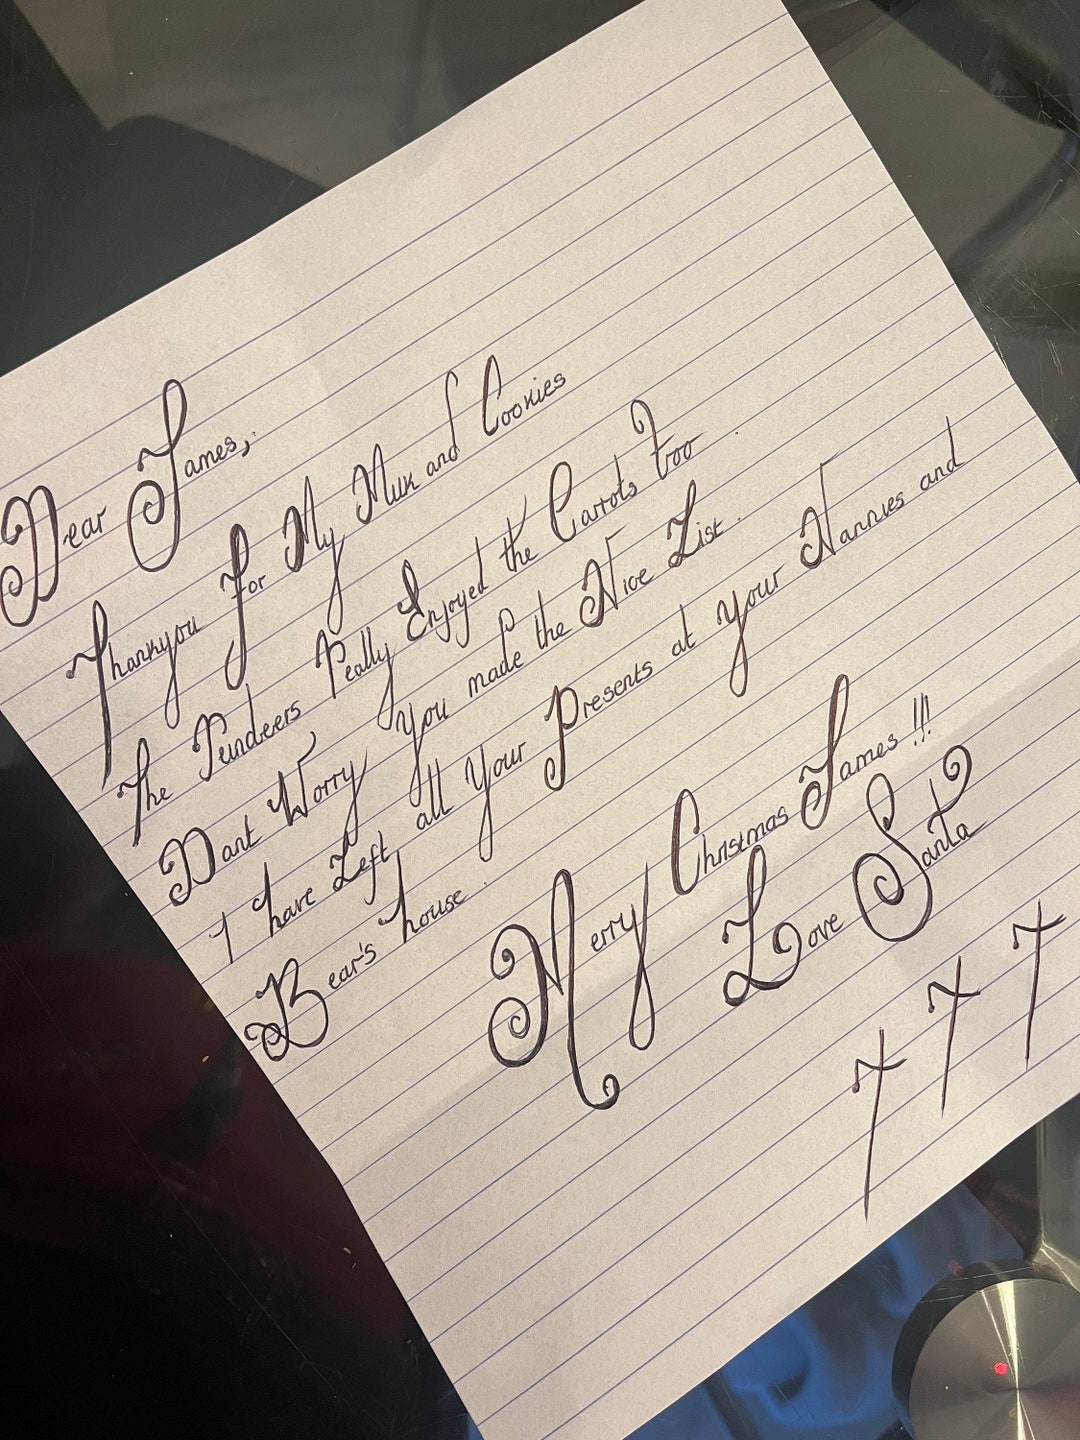 Dear James,
Thankyou For My Milk and Cookies
The Reindeers Really Enjoyed the Carrots too
Dont Worry you made the Nice List.
I have Left all your Presents at your Nannies and
Bear's house.
Merry Christmas James !!!
Love Santa
x x x